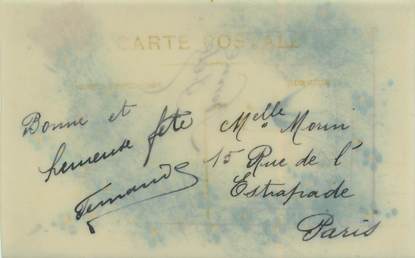 CARTE POSTALE
Bonne et
heureuse fête
Fernande
Melle Morin
15 Rue de l'
Estrapade
Paris